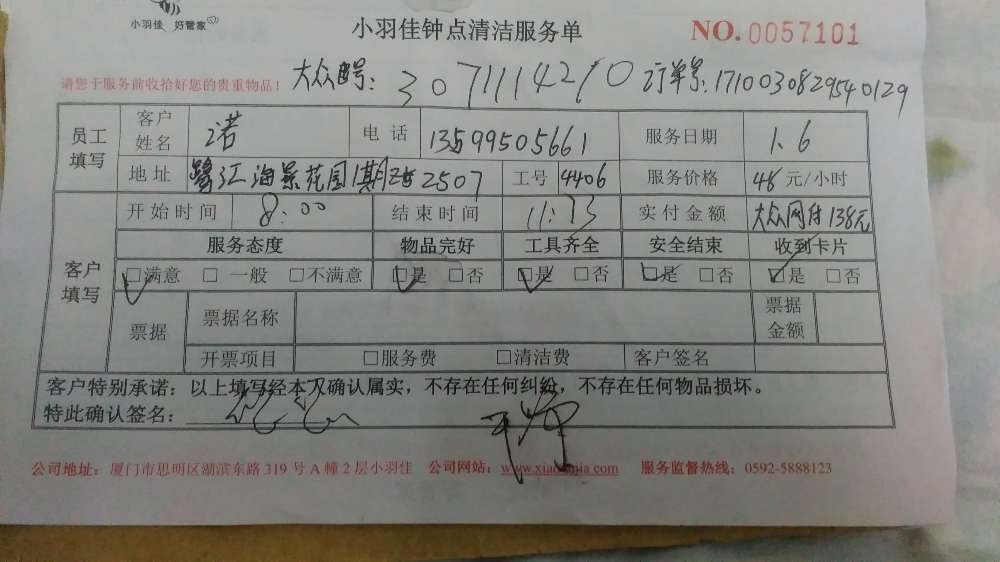 小羽佳 好管家
小羽佳钟点清洁服务单
NO.0057101
请您于服务前收拾好您的贵重物品！ 大众 号：3071114210 订单号：171003082954 0129
员工填写 客户姓名 诺 电话 13599505661 服务日期 1.6
地址 鹭江海景花园1期 2507 工号 4406 服务价格 48 元/小时
开始时间 8:00 结束时间 11:23 实付金额 大众网付138元
客户填写 服务态度 物品完好 工具齐全 安全结束 收到卡片
□满意 □一般 □不满意 □是 □否 □是 □否 □是 □否 □是 □否
票据 票据名称 票据金额
开票项目 □服务费 □清洁费 客户签名
客户特别承诺：以上填写经本人确认属实，不存在任何纠纷，不存在任何物品损坏。
特此确认签名：
公司地址：厦门市思明区湖滨东路 319 号 A 幢 2 层小羽佳 公司网站： 服务监督热线：0592-5888123